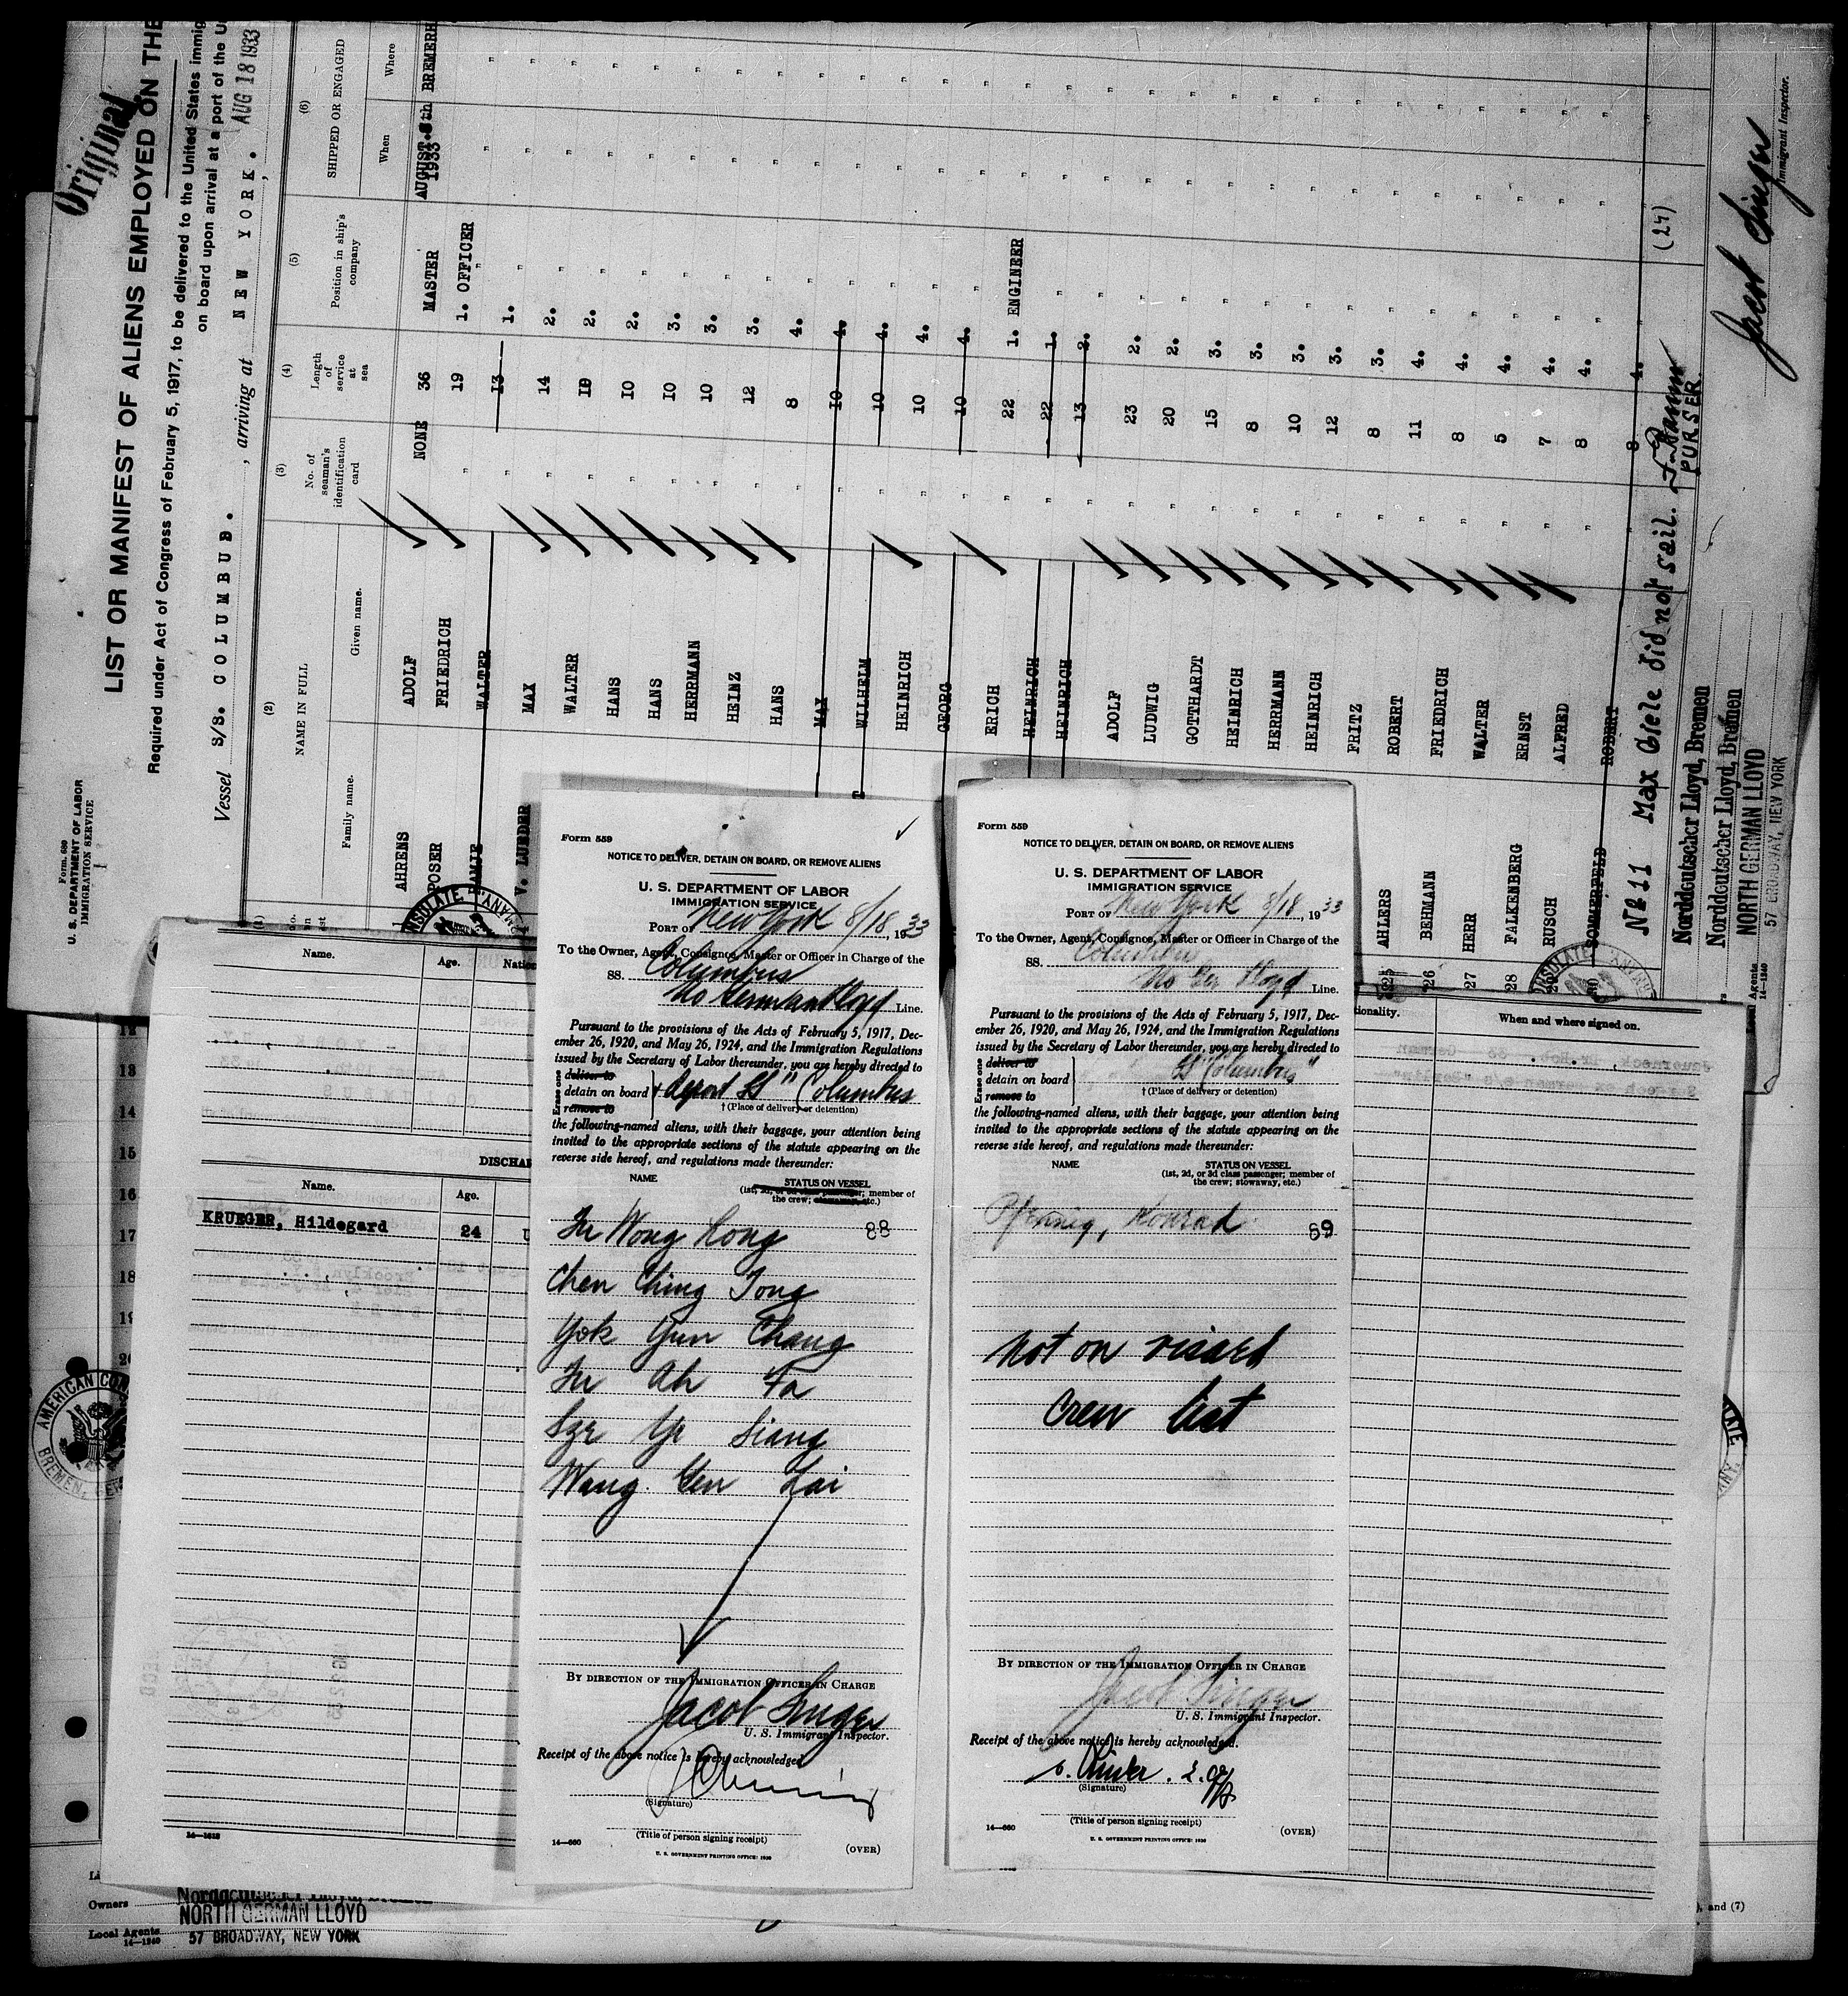 Original
Form 689
U. S. DEPARTMENT OF LABOR
IMMIGRATION SERVICE
LIST OR MANIFEST OF ALIENS EMPLOYED ON THE
Required under Act of Congress of February 5, 1917, to be delivered to the United States immig
on board upon arrival at a port of the U
Vessel S/S. COLUMBUS. , arriving at NEW YORK. , AUG 18 1933
(2) (3) (4) (5) (6)
NAME IN FULL
Family name. Given name.
No. of seaman's identification card
Length of service at sea
Position in ship's company
SHIPPED OR ENGAGED
When Where
AHRENS ADOLF NONE 36 MASTER AUGUST.8th 1933 BREMERH
POSER FRIEDRICH " 19 1. OFFICER
WALTER " 13 1. " " "
V. LUEDER MAX " 14 2. " " "
WALTER " 10 2. " " "
HANS " 10 2. " " "
HANS " 10 3. " " "
HERRMANN " 10 3. " " "
HEINZ " 12 3. " " "
HANS " 8 4. " " "
MAX " 10 4. " " "
WILHELM " 10 4. " " "
HEINRICH " 10 4. " " "
GEORG " 10 4. " " "
ERICH " 22 1. ENGINEER " "
HEINRICH " 22 1. " " "
HEINRICH " 13 2. " " "
ADOLF " 23 2. " " "
LUDWIG " 20 2. " " "
GOTTHARDT " 15 3. " " "
HEINRICH " 8 3. " " "
HERRMANN " 10 3. " " "
HEINRICH " 12 3. " " "
FRITZ " 8 3. " " "
25 AHLERS ROBERT " 11 4. " " "
26 BEHMANN FRIEDRICH " 8 4. " " "
27 HERR WALTER " 5 4. " " "
28 FALKENBERG ERNST " 7 4. " " "
29 RUSCH ALFRED " 8 4. " " "
30 SOMMERFELD ROBERT " 8 4. " " "
No 11 Max Giele did not sail.
PURSER
(24)
Norddeutscher Lloyd, Bremen
Norddeutscher Lloyd, Bremen
NORTH GERMAN LLOYD
57 BROADWAY, NEW YORK
Agents
14—1240
Jacob Singer
Immigrant Inspector.
Form 559
NOTICE TO DELIVER, DETAIN ON BOARD, OR REMOVE ALIENS
U. S. DEPARTMENT OF LABOR
IMMIGRATION SERVICE
PORT OF New York 8/18, 1933
To the Owner, Agent, Consignee, Master or Officer in Charge of the
SS. Columbus
No German Lloyd Line.
Pursuant to the provisions of the Acts of February 5, 1917, Dec-
ember 26, 1920, and May 26, 1924, and the Immigration Regulations
issued by the Secretary of Labor thereunder, you are hereby directed to
Erase one
deliver to
detain on board + deport SS "Columbus
remove to
†(Place of delivery or detention)
the following-named aliens, with their baggage, your attention being
invited to the appropriate sections of the statute appearing on the
reverse side hereof, and regulations made thereunder:
NAME STATUS ON VESSEL
(1st, 2d, or 3d class passenger; member of
the crew; stowaway, etc.)
Fu Wong Kong 88
Chen Ching Tong
Yok Gun Chang
Fu Ah Fa
Sze Ye Siang
Wang Yen Lai
BY DIRECTION OF THE IMMIGRATION OFFICER IN CHARGE
Jacob Singer
U. S. Immigrant Inspector.
Receipt of the above notice is hereby acknowledged.
(Signature)
(Title of person signing receipt)
14—660
U. S. GOVERNMENT PRINTING OFFICE: 1930
(OVER)
Form 559
NOTICE TO DELIVER, DETAIN ON BOARD, OR REMOVE ALIENS
U. S. DEPARTMENT OF LABOR
IMMIGRATION SERVICE
PORT OF New York 8/18, 1933
To the Owner, Agent, Consignee, Master or Officer in Charge of the
SS. Columbus
No Ger Lloyd Line.
Pursuant to the provisions of the Acts of February 5, 1917, Dec-
ember 26, 1920, and May 26, 1924, and the Immigration Regulations
issued by the Secretary of Labor thereunder, you are hereby directed to
Erase one
deliver to
detain on board SS "Columbus"
remove to
†(Place of delivery or detention)
the following-named aliens, with their baggage, your attention being
invited to the appropriate sections of the statute appearing on the
reverse side hereof, and regulations made thereunder:
NAME STATUS ON VESSEL
(1st, 2d, or 3d class passenger; member of
the crew; stowaway, etc.)
Pfennig, Konrad 89
not on visaed
crew list
BY DIRECTION OF THE IMMIGRATION OFFICER IN CHARGE
Jacob Singer
U. S. Immigrant Inspector.
Receipt of the above notice is hereby acknowledged.
(Signature)
(Title of person signing receipt)
14—660
U. S. GOVERNMENT PRINTING OFFICE: 1930
(OVER)
Name. Age. Nation
DISCHAR
Name. Age.
KRUEGER, Hildegard 24 U
14—1618
tionality. When and where signed on.
12
13
14
15
16
17
18
19
20
AMERICAN CON
BREMEN, GER
Owners Norddeutscher Lloyd, Bremen
NORTH GERMAN LLOYD
Local Agents 57 BROADWAY, NEW YORK
14—1240
), and (7)